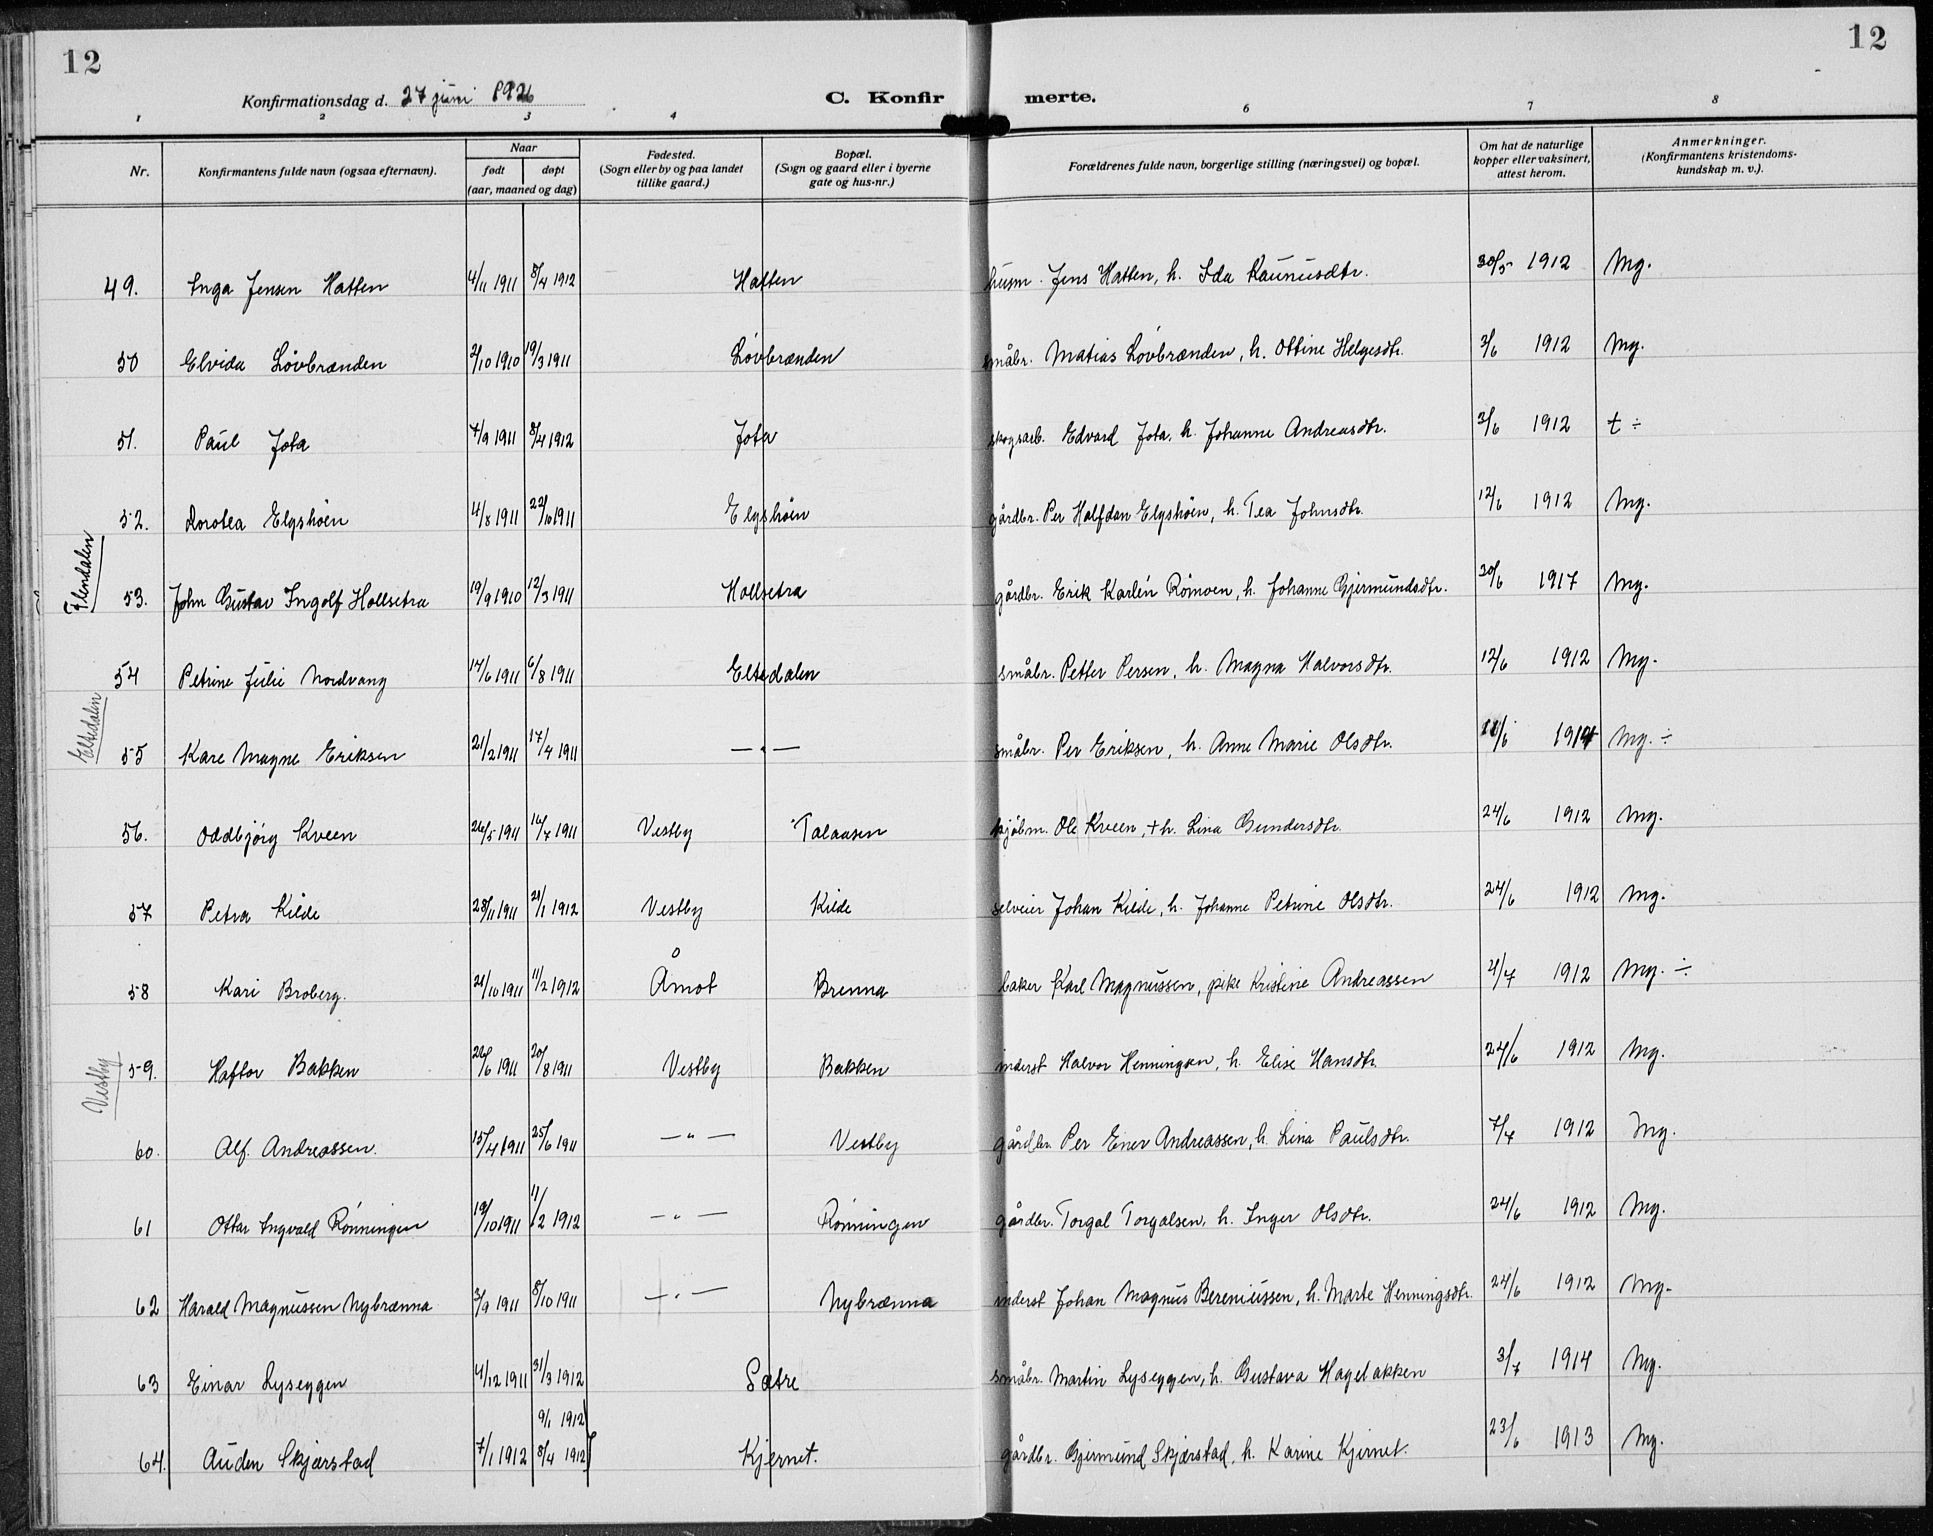 12
12
Konfirmationsdag d. 27 juni 1926
C. Konfir merte.
1 2 3 4 6 7 8
Nr.
Konfirmantens fulde navn (ogsaa efternavn).
Naar
født døpt
(aar, maaned og dag)
Fødested.
(Sogn eller by og paa landet
tillike gaard.)
Bopæl.
(Sogn og gaard eller i byerne
gate og hus-nr.)
Forældrenes fulde navn, borgerlige stilling (næringsvei) og bopæl.
Om hat de naturlige
kopper eller vaksinert,
attest herom.
Anmerkninger.
(Konfirmantens kristendoms-
kundskap m. v.).
49. Inga Jensen Hatten 4/11 1911 8/4 1912 Hatten husm. Jens Hatten, h. Ida Raunusdtr. 30/5 1912 Mg.
50 Elvida Lövbrænden 2/10 1910 19/3 1911 Lövbrænden småbr. Matias Lövbrænden, h. Ottine Helgesdtr. 3/6 1912 Mg.
51. Paul Jota 7/9 1911 8/4 1912 Jota skogsarb. Edvard Jota, h. Johanne Andreasdtr. 3/6 1912 t ÷
52. Dorotea Elgshöen 4/8 1911 22/10 1911 Elgshöen gårdbr. Per Halfdan Elgshöen, h. Tea Johnsdtr. 12/6 1912 Mg.
Flendalen
53. John Gustav Ingolf Hollsetra 19/9 1910 12/3 1911 Hollsetra gårdbr. Erik Karlén Römoen, h. Johanne Gjermundsdtr. 20/6 1917 Mg.
54 Petrine Julie Nordvang 14/6 1911 6/8 1911 Eltedalen småbr. Petter Persen, h. Magna Halvorsdtr. 12/6 1912 Mg.
Eltedalen
55 Kare Magne Eriksen 21/2 1911 17/4 1911 — " — småbr. Per Eriksen, h. Anne Marie Olsdtr. 11/6 1914 Mg. ÷
56. Oddbjörg Kveen 26/5 1911 16/7 1911 Vestby Talaasen kjöbm. Ole Kveen, + h. Lina Gundersdtr. 24/6 1912 Mg.
57 Petra Kilde 28/11 1911 21/1 1912 Vestby Kilde selveier Johan Kilde, h. Johanne Petrine Olsdtr. 24/6 1912 Mg.
58 Kari Broberg. 21/10 1911 11/2 1912 Åmot Brenna baker Karl Magnussen, pike Kristine Andreassen 4/7 1912 Mg. ÷
Vestby
59. Haftor Bakken 26/6 1911 20/8 1911 Vestby Bakken inderst Halvor Henningsen, h. Elise Hansdtr. 24/6 1912 Mg.
60. Alf. Andreassen. 15/4 1911 25/6 1911 — " — Vestby gårdbr. Per Ener Andreassen, h. Lina Paulsdtr. 7/7 1912 Mg.
61 Ottar Ingvald Rönningen 19/10 1911 11/2 1912 — " — Rönningen gårdbr. Torgal Torgalsen, h. Inger Olsdtr. 24/6 1912 Mg.
62 Harald Magnussen Nybrænna 3/9 1911 8/10 1911 — " — Nybrænna inderst Johan Magnus Bereniussen, h. Marte Henningsdtr. 24/6 1912 Mg.
63 Einar Lyseggen 4/12 1911 31/3 1912 Sætre småbr. Martin Lyseggen, h. Gustava Hagelakken 3/7 1914 Mg.
9/1 1912
64. Auden Skjærstad 7/1 1912 8/4 1912 Kjernet. gårdbr. Gjermund Skjærstad, h. Karine Kjernet. 23/6 1913 Mg.